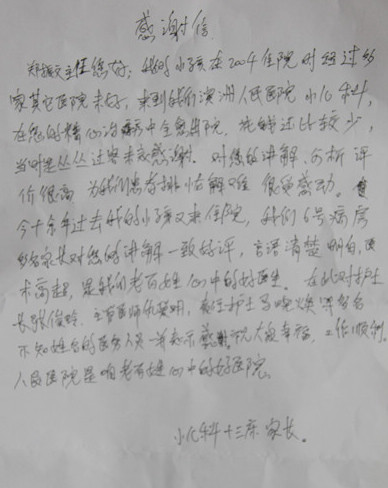 感谢信
郑振文主任您好：我的小孩在2004住院时经过多
家其它医院未好，来到我们濮洲人民医院小儿科，
在您的精心治病中全愈出院，花钱还比较少，
当时是丛丛过客未交感谢。对您的讲解、分析评
价很高 为我们患者排忧解难 很受感动。
今十余年过去我的小孩又来住院，我们6号病房
多名家长对您的讲解一致好评，言语清楚明白，医
术高超，是我们老百姓心中的好医生。在此对护士
长张俊 主管医师 明，责任护士马晓焕 等多名
不知姓名的医务人员一并表示感谢 祝大家幸福，工作顺利。
人民医院是咱老百姓心中的好医院。
小儿科十三床 家长。